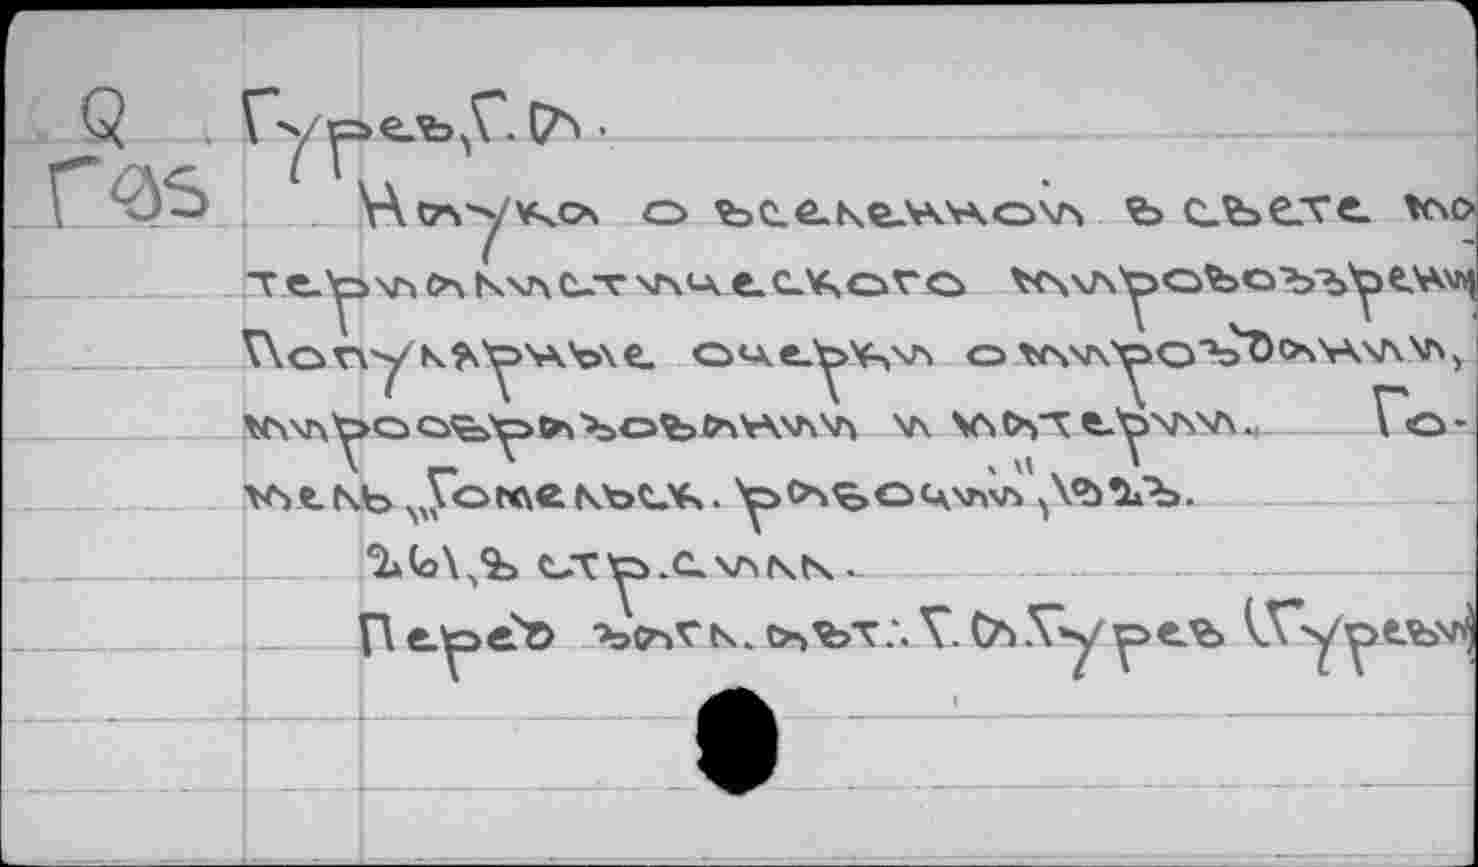 Q Гурев,Г.А.
Г95 Наука о вселенной в свете ма
териалистического мировоззрени
Популярные очерки о мироздании,
мирообразовании и материи. Го-
мель „Гомельск. рабочий",1923.
261,3 стр.с илл.
Перед загл. авт.: Г.А.Гурев (Гуреви